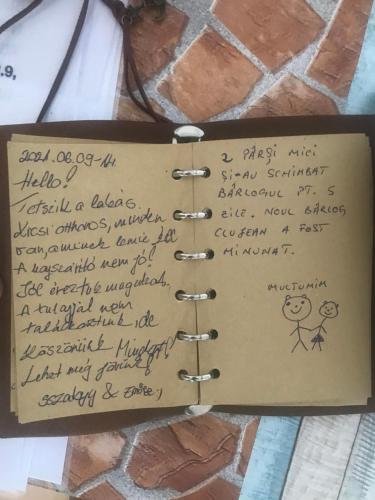 2.9,
2021.06.09-14.
Hello!
Tetszik a lakás.
Kicsi otthonos, minden
van, aminek lennie kell
A hajszárító nem jó!
Jól éreztük magunkat,
A tulajjal nem
találkoztunk, de
köszönünk Mindent!
Lehet még jövünk
& Emőke :)
2 PÂRȘI MICI
ȘI-AU SCHIMBAT
BÂRLOGUL PT. 5
ZILE. NOUL BÂRLOG
CLUJEAN A FOST
MINUNAT.
MULȚUMIM